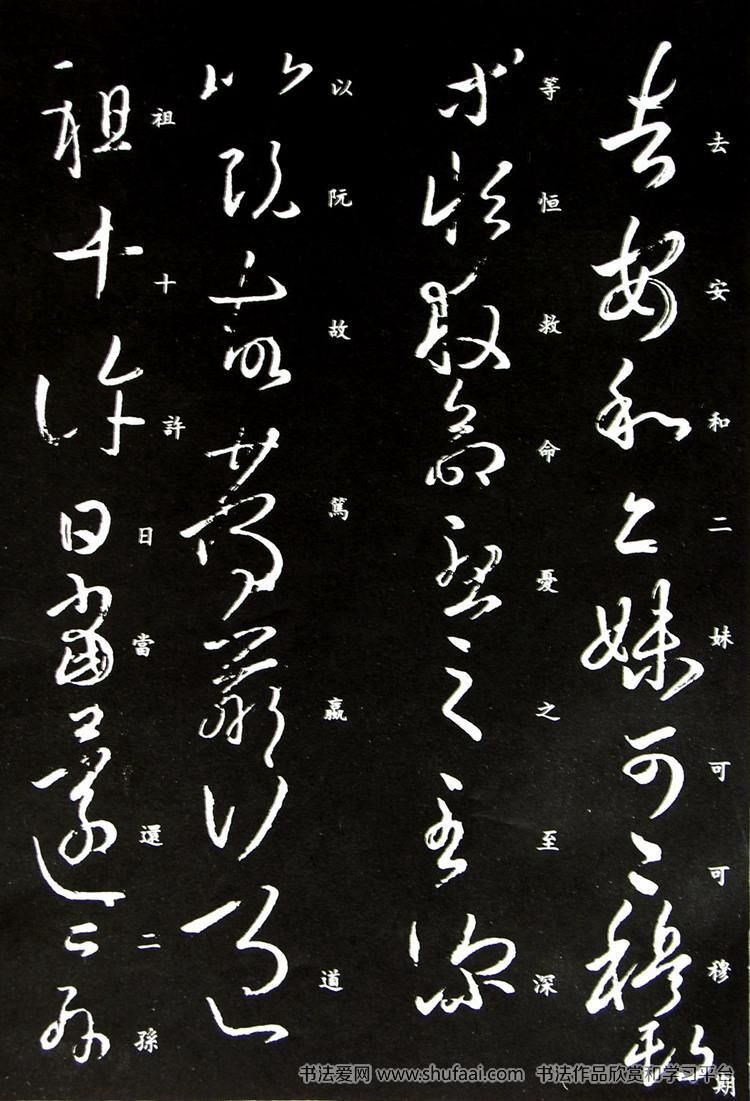 去安和二妹可可穆期
等恒救命憂之至深
以阮故篤羸道
祖十許日當還二孫
书法爱网 www.shufaai.com 书法作品欣赏和学习平台